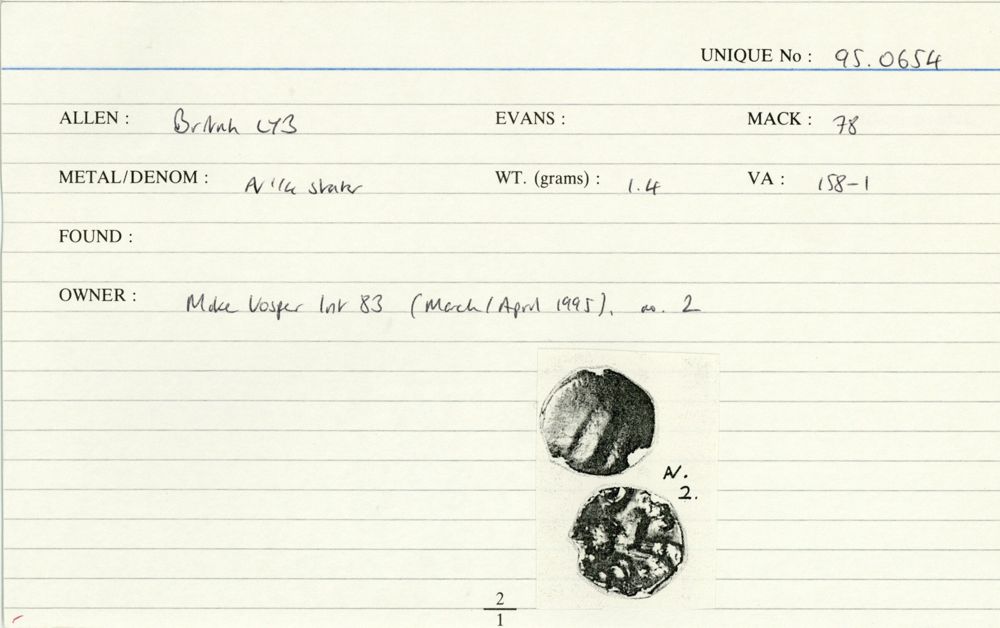 UNIQUE No : 95.0654
ALLEN : British LY3 EVANS : MACK : 78
METAL/DENOM : AV 1/4 stater WT. (grams) : 1.4 VA : 158-1
FOUND :
OWNER : Mike Vosper list 83 (March/April 1995), no. 2
AV.
2.
2
1